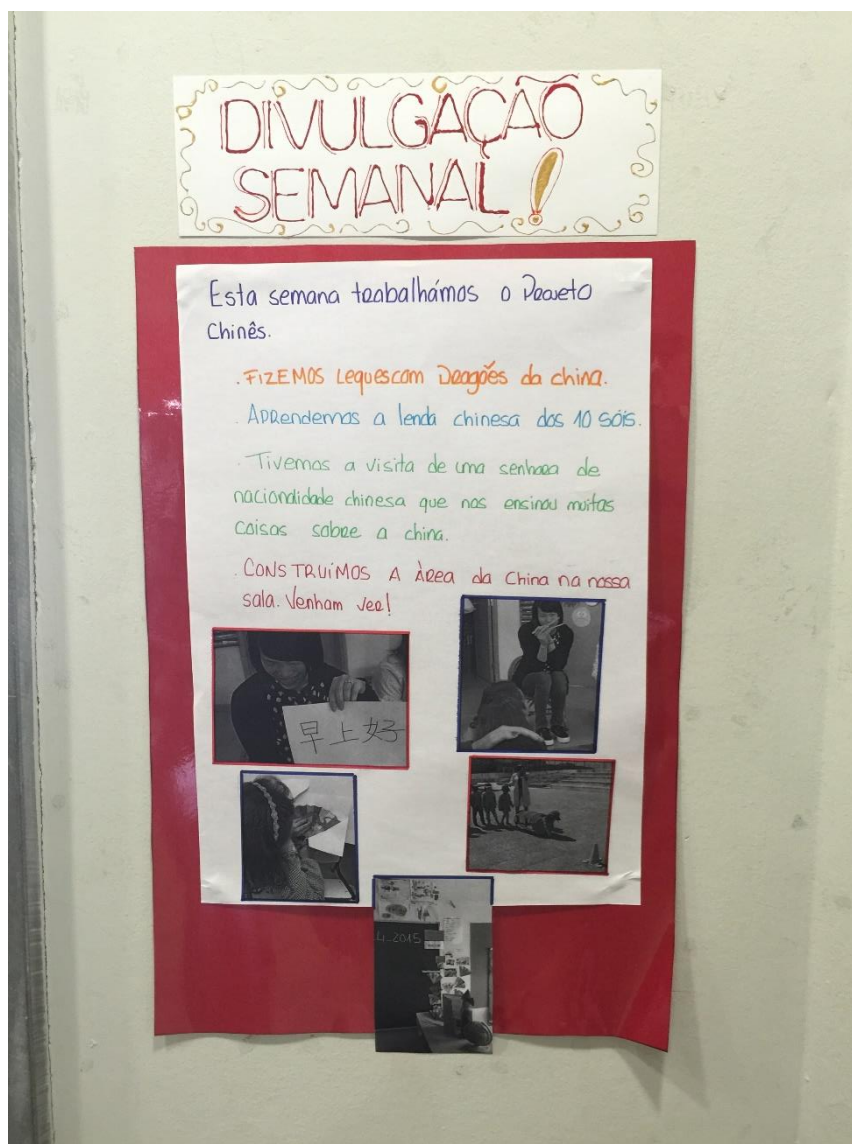 DIVULGAÇÃO
SEMANAL!
Esta semana trabalhámos o Projeto
Chinês.
. FIZEMOS Leques com Dragões da china.
. APRendemos a lenda chinesa dos 10 SÓIS.
. Tivemos a visita de uma senhora de
naciondidade chinesa que nos ensinou muitas
coisas sobre a china.
. CONSTRUÍMOS A ÀRea da China na nossa
sala. Venham ver!
早上好
4-2015